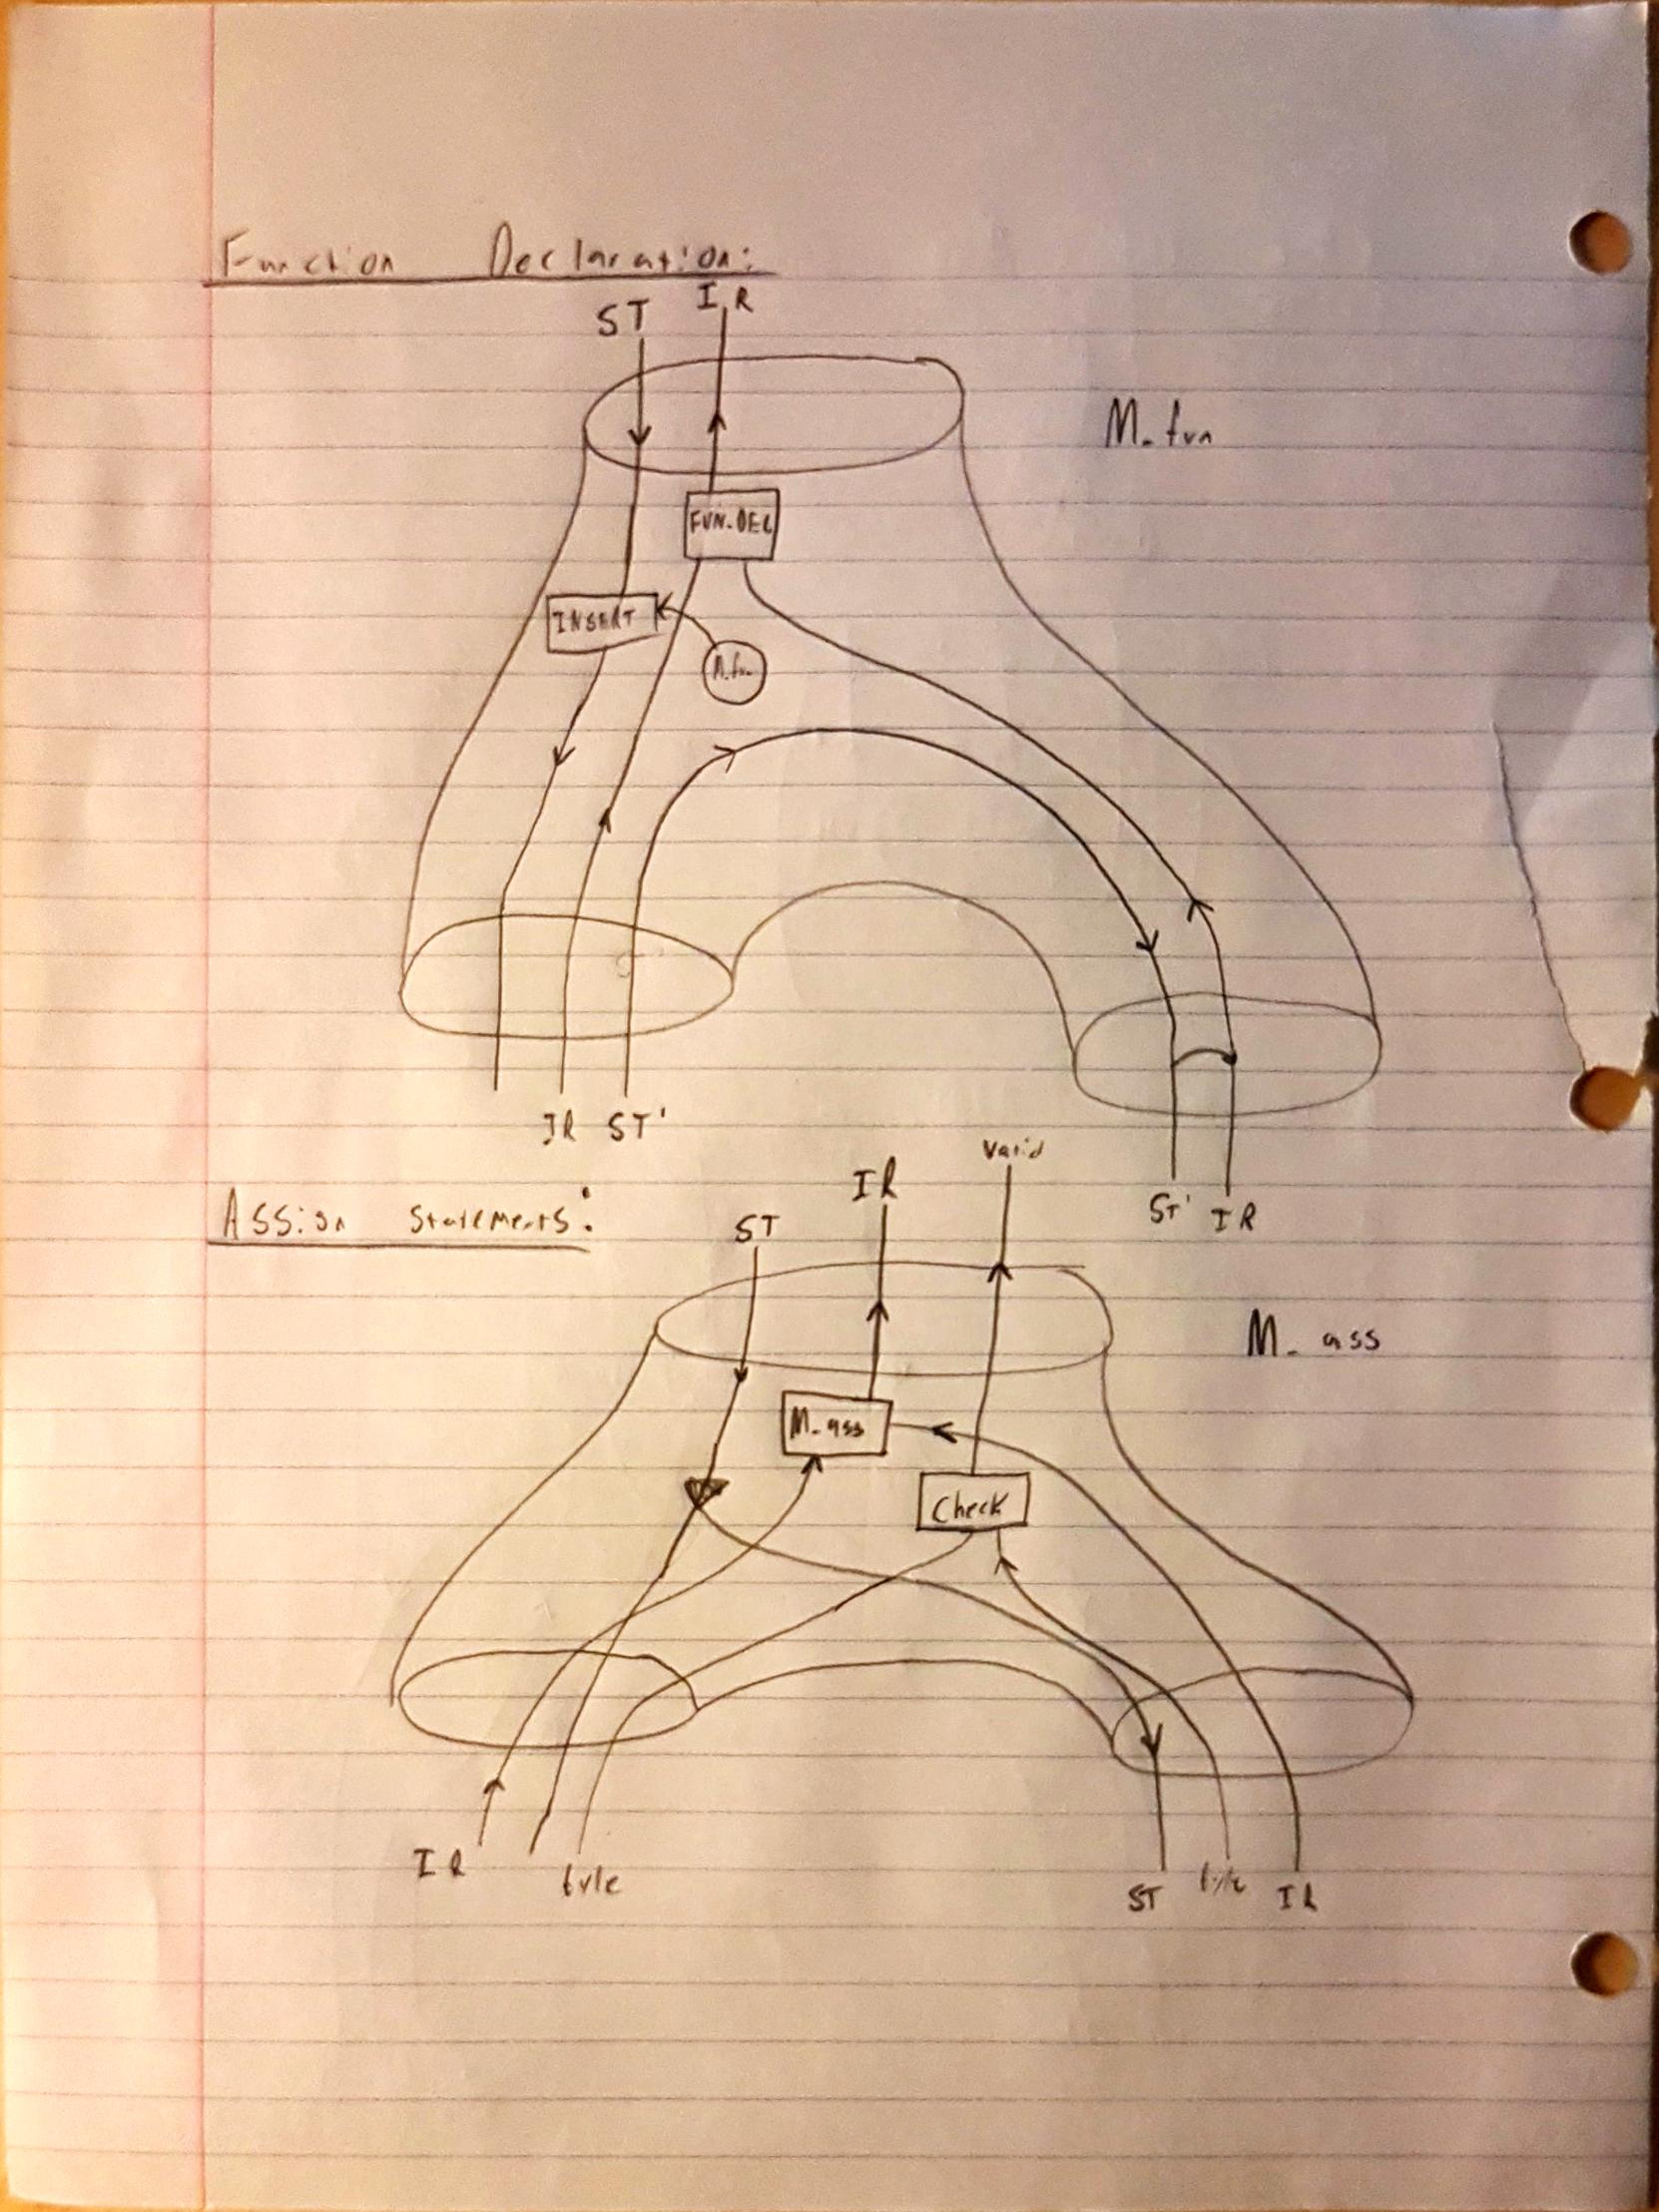 Function Declaration:
ST IR
M-fun
FUN-DEC
INSERT
M-fun
IR ST'
ST' IR
Assign Statements:
ST IR Valid
M-ass
M-ass
Check
IR
ST IR